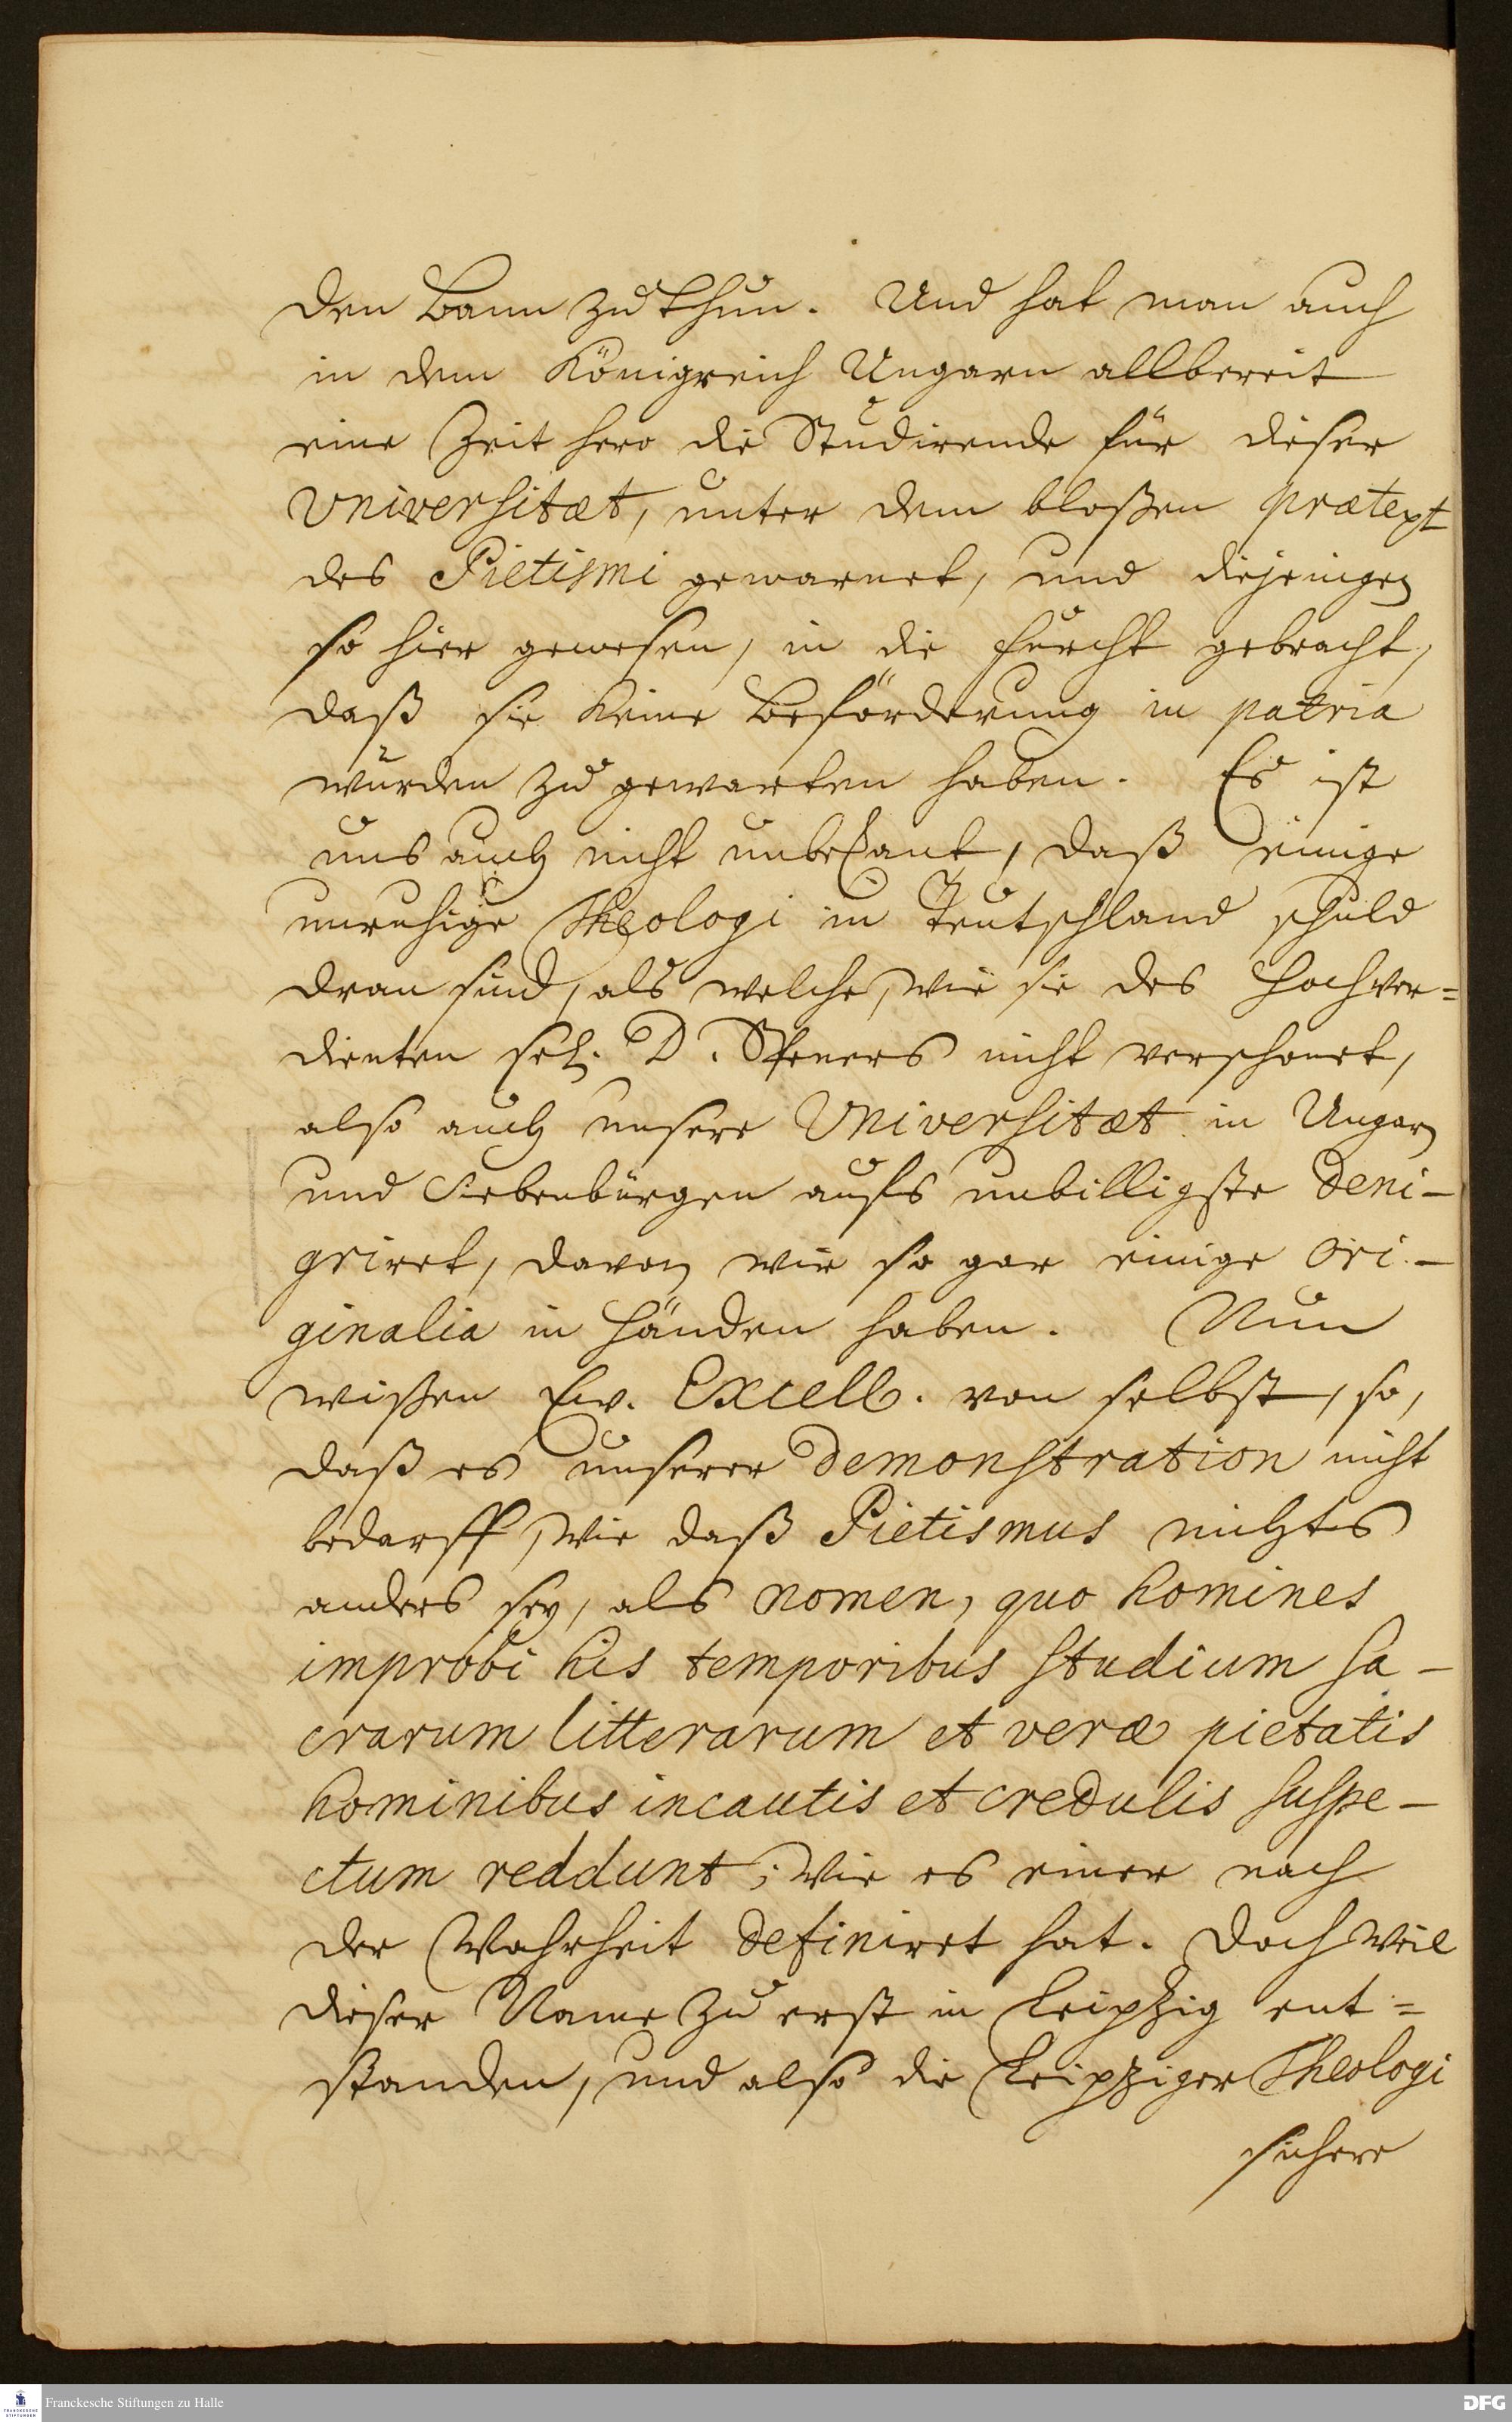 den Bann zu thun. Und hat man auch
in dem Königreich Ungarn allbereit
eine Zeit hero die Studirende für dieser
Universitæt, unter dem bloßen prætext
des Pietismi gewarnet, und diejenigen
so hier gewesen, in die furcht gebracht,
daß sie keine beförderung in patria
würden zu gewarten haben. Es ist
uns auch nicht unbekant, daß einige
unruhige Theologi in Teutschland schuld
dran sind, als welche, wie sie des Hochver=
dienten sel. D. Speners nicht verschonet,
also auch unsere Universitæt in Ungarn
und Siebenbürgen aufs unbilligste deni-
griret, davon wir so gar einige Ori-
ginalia in Händen haben. Nun
wißen Ew. Excell. von selbst, so,
daß es unserer demonstration nicht
bedarff, wie daß Pietismus nichts
anders sey, als nomen, quo homines
improbi his temporibus studium sa-
crarum litterarum et veræ pietatis
hominibus incautis et credulis suspe-
ctum reddunt; wie es einer nach
der Wahrheit definiret hat. Doch weil
dieser Name zu erst in Leipzig ent=
standen, und also die Leipziger Theologi
sichere
Franckesche Stiftungen zu Halle
FRANCKESCHE
STIFTUNGEN
DFG